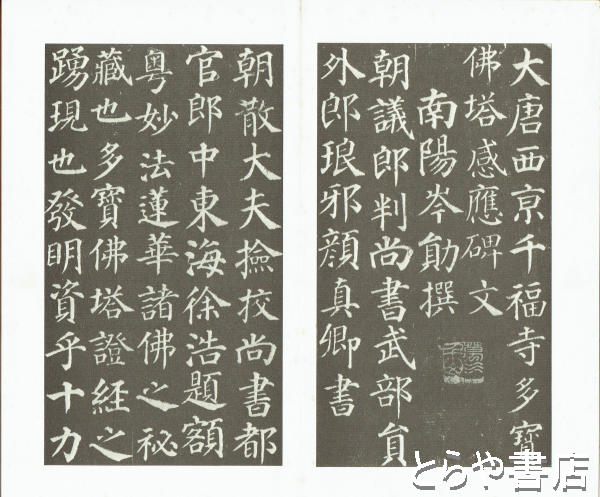 大唐西京千福寺多寶
佛塔感應碑文
南陽岑勛撰
朝議郎判尚書武部員
外郎琅邪顏真卿書
朝散大夫撿挍尚書都
官郎中東海徐浩題額
粵妙法蓮華諸佛之祕
藏也多寶佛塔證經之
踴現也發明資乎十力
とらや書店